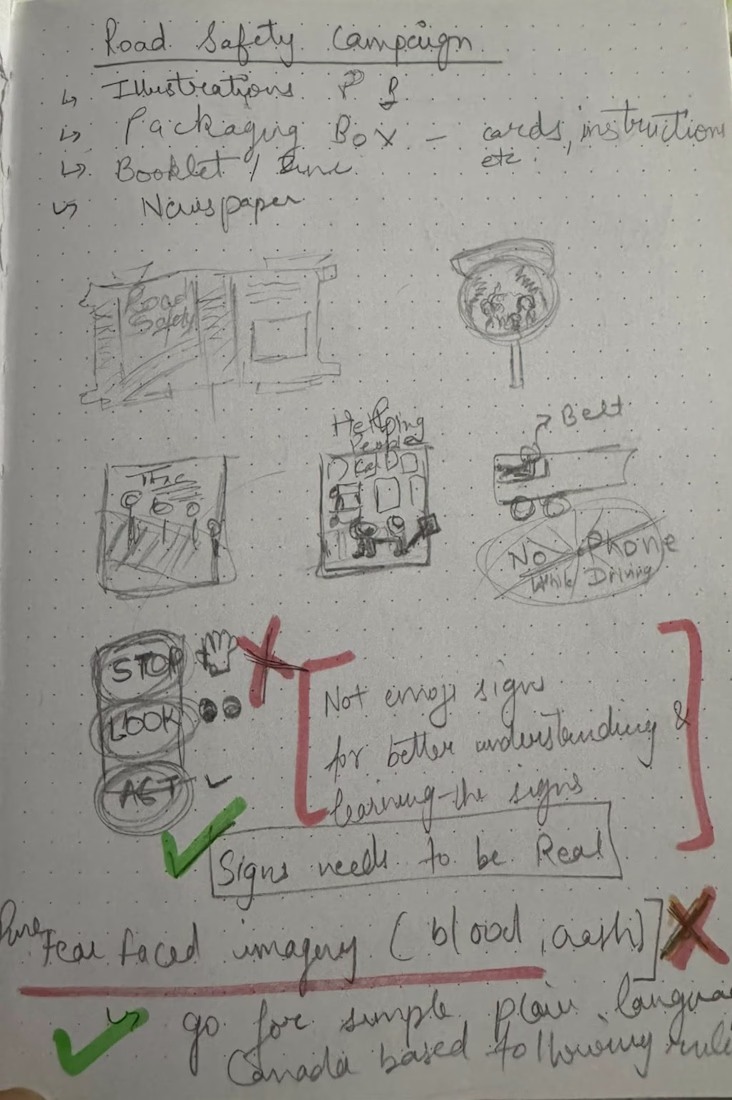 Road Safety Campaign
↳ Illustrations
↳ Packaging Box - cards, instructions
etc.
↳ Booklet / Zine
↳ Newspaper
Road
Safety
Helping
People
→ Belt
The
No Phone
While Driving
STOP
LOOK
ACT
Not emoji signs
for better understanding &
learning the signs
Signs needs to be Real
Pure
Fear faced imagery (blood, crash)
↳ go for simple, plain
Canada based following